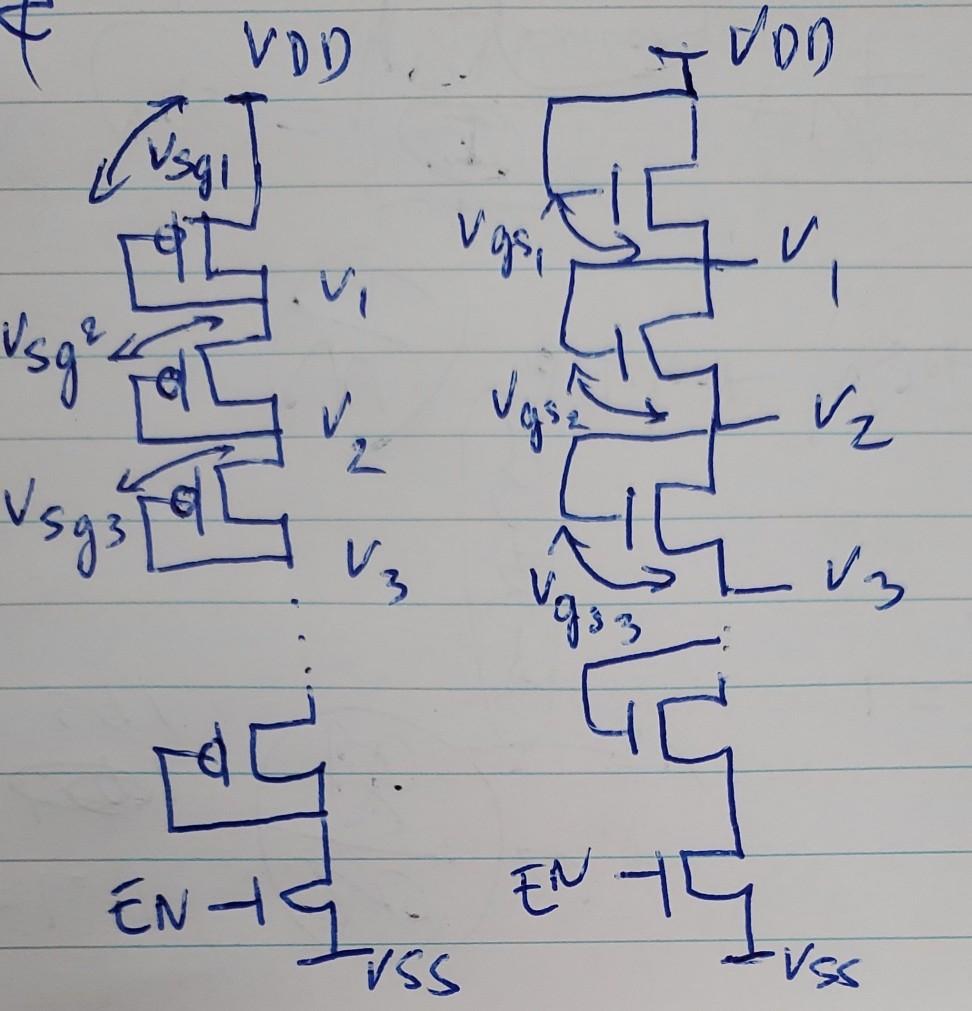 VDD
VDD
Vsg1
Vgs1
V1
V1
Vsg2
Vgs2
V2
V2
Vsg3
Vgs3
V3
V3
EN
EN
VSS
VSS